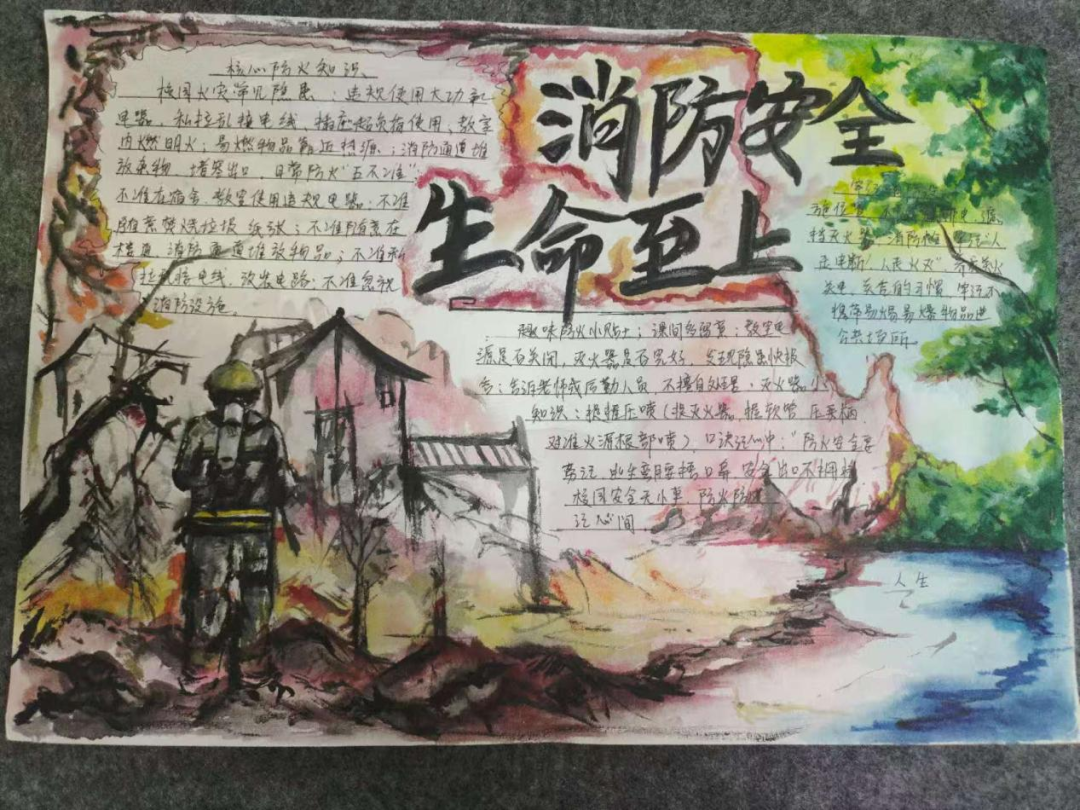 消防安全
生命至上
核心防火知识
校园火灾常见隐患：违规使用大功率
电器，私拉乱接电线，插座超负荷使用，教室
内燃明火；易燃物品靠近热源；消防通道堆
放杂物，堵塞出口，日常防火“五不准”
不准在宿舍、教室使用违规电器；不准
随意焚烧垃圾 纸张；不准随意在
楼道 消防通道堆放物品；不准私
拉乱接电线，改装电路；不准忽视
消防设施。
趣味防火小贴士；课间多留意：教室电
源是否关闭，灭火器是否完好，发现隐患快报
告；告诉老师或后勤人员 不擅自处置，灭火器小
知识：提拔握压喷（提灭火器 握软管 压手柄
对准火源根部喷）口诀记心中：“防火安全要
牢记 逃生弯腰捂口鼻 安全出口不拥挤
校园安全无小事 防火防
记心间
档灭火器 消防栓
走电断“人走火灭”
关电 充电的习惯，牢记不
携带易燃易爆物品进
公共场所
人生